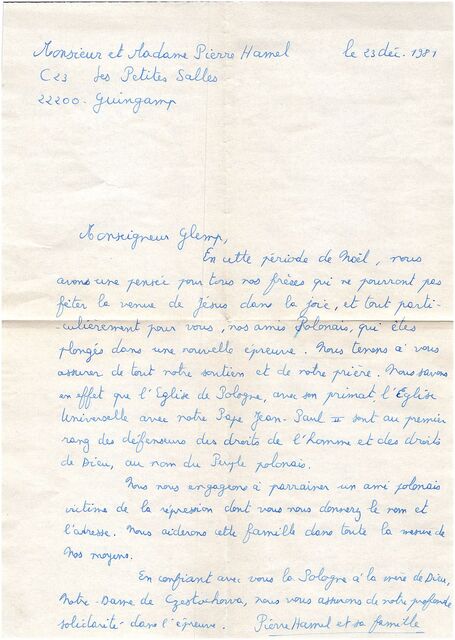 Monsieur et Madame Pierre Hamel le 23 déc. 1981
C23 les Petites Salles
22200 - Guingamp
Monseigneur Glemp,
En cette période de Noël, nous
avons une pensée pour tous nos frères qui ne pourront pas
fêter la venue de Jésus dans la joie, et tout parti-
-culièrement pour vous, nos amis Polonais, qui êtes
plongés dans une nouvelle épreuve. Nous tenons à vous
assurer de tout notre soutien et de notre prière. Nous savons
en effet que l'Eglise de Pologne, avec son primat, l'Eglise
Universelle avec notre Pape Jean-Paul II sont au premier
rang des défenseurs des droits de l'homme et des droits
de Dieu, au nom du Peuple polonais.
Nous nous engageons à parrainer un ami polonais
victime de la répression dont vous nous donnerez le nom et
l'adresse. Nous aiderons cette famille dans toute la mesure de
nos moyens.
En confiant avec vous la Pologne à la mère de Dieu,
Notre-Dame de Czestochowa, nous vous assurons de notre profonde
solidarité dans l'épreuve. Pierre Hamel et sa famille